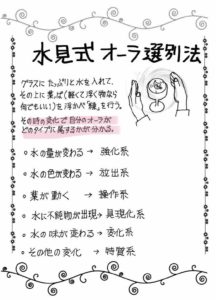 水見式 オーラ選別法
グラスに たっぷりと水を入れて、
その上に葉っぱ(軽くて浮く物なら
何でもいい!)を浮かべ「練」を行う。
その時の変化で自分のオーラが
どのタイプに属するかが分かる。
○ 水の量が変わる → 強化系
○ 水の色が変わる → 放出系
○ 葉が動く → 操作系
○ 水に不純物が出現→ 具現化系
○ 水の味が変わる → 変化系
○ その他の変化 → 特質系